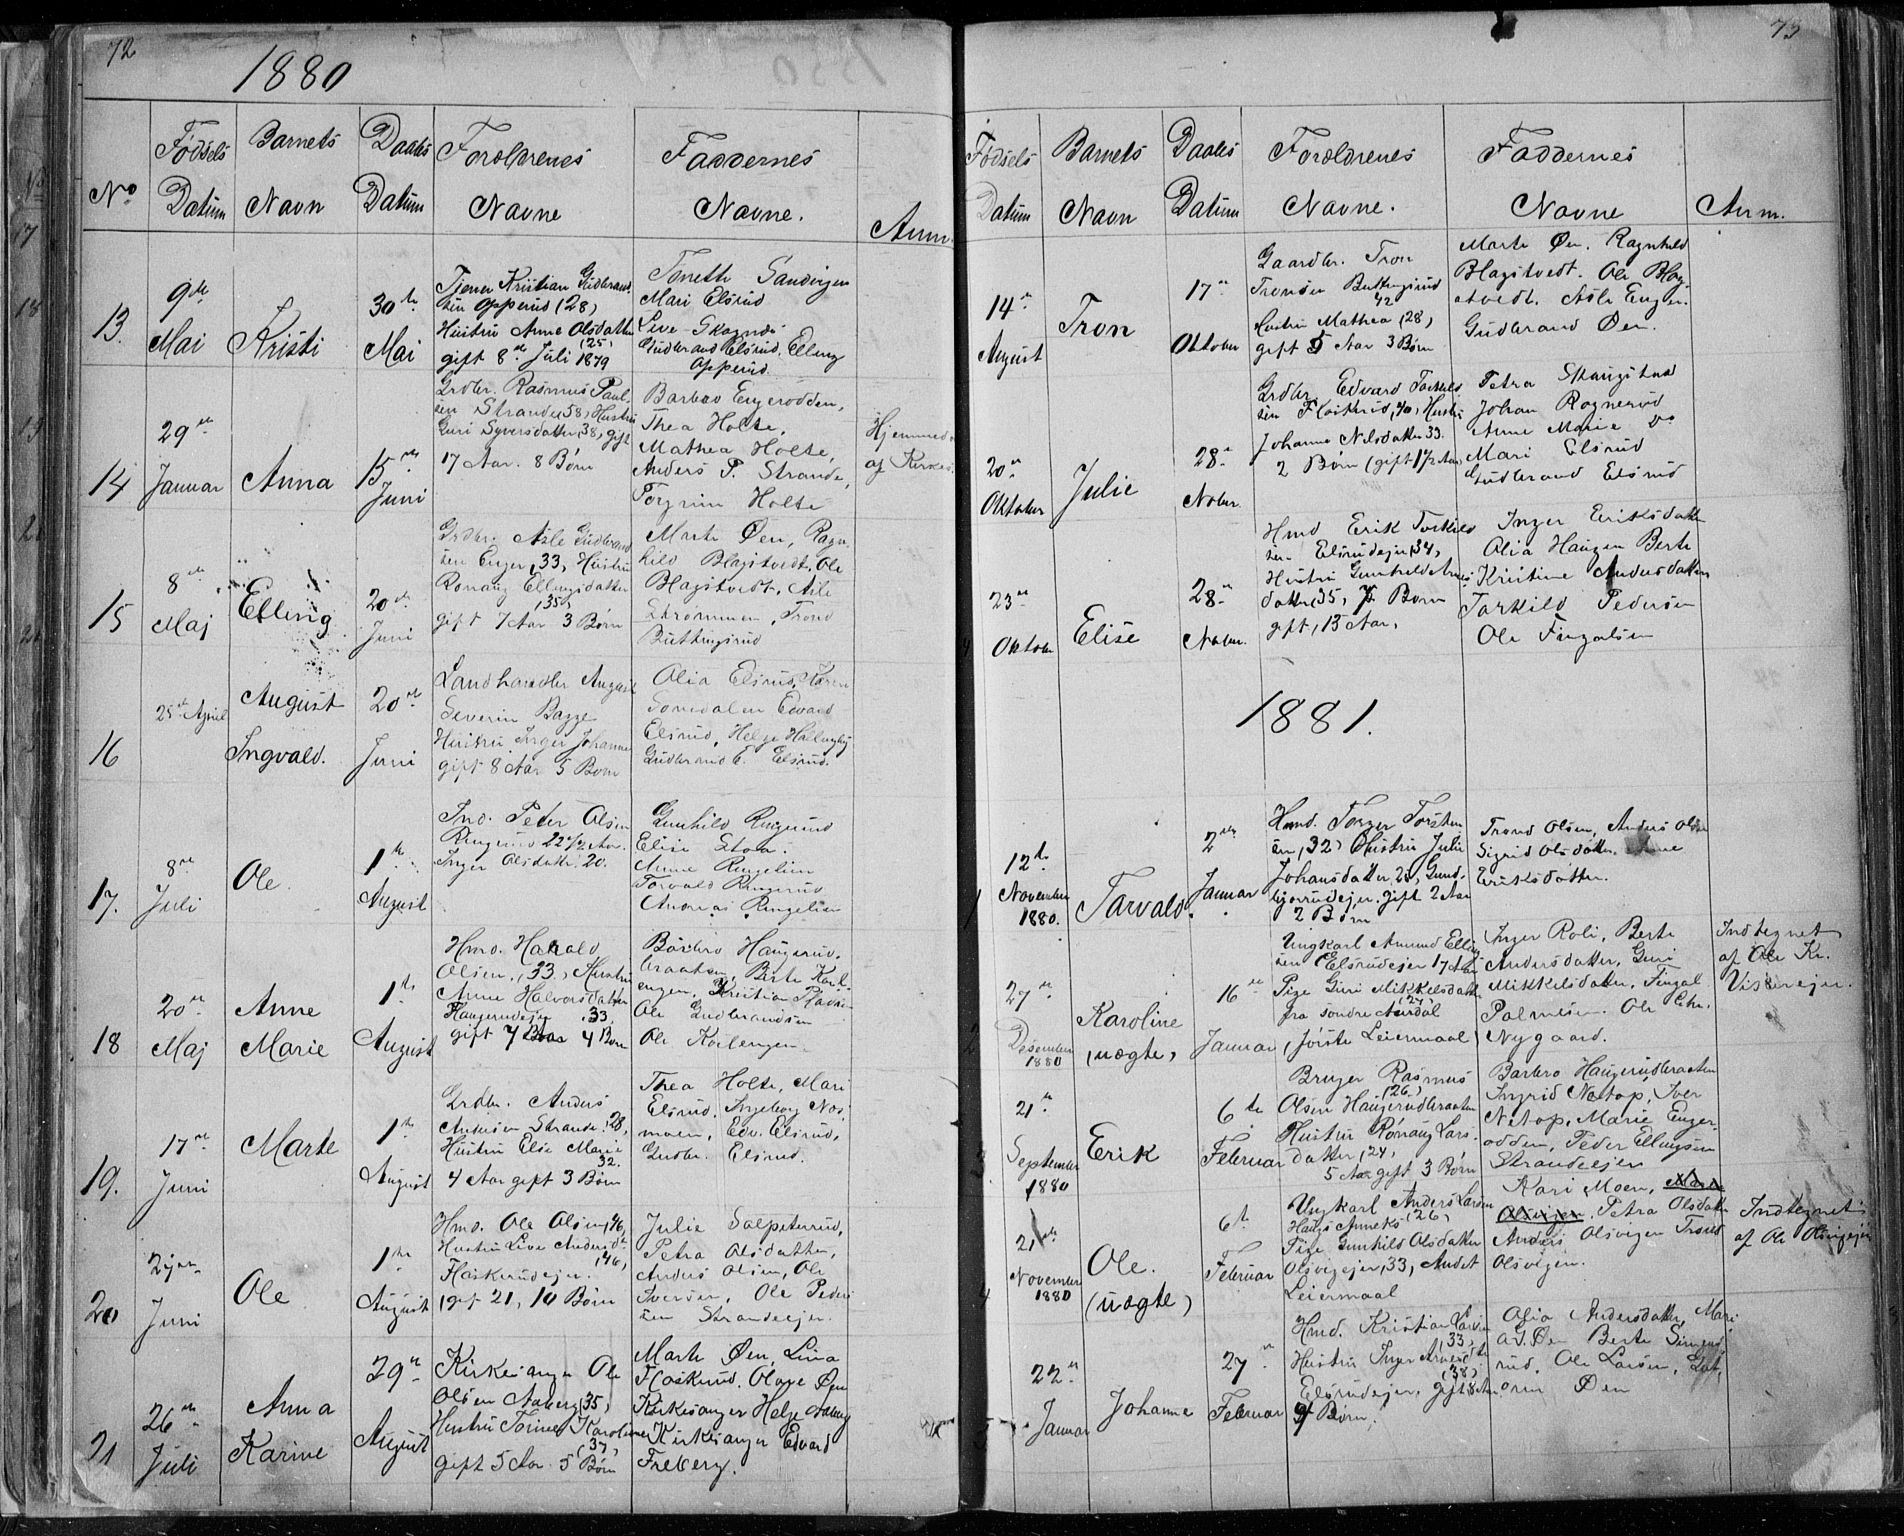 72
1880
No
Fødsels Datum
Barnets Navn
Daabs Datum
Forældrenes Navne
Faddernes Navne.
Anm.
13.
9de Mai
Kristi
30te Mai
Tjener Kristian Gudbrand
sen Opperud (28)
Hustru Anne Olsdatter
(25)
gift 8de Juli 1879
Tonette Sandvigen
Mari Elsrud
Live Skagnæs
Gudbrand Elsrud, Elling
Opperud.
14
29de Januar
Anna
15de Juni
Grdbr. Rasmus Paul-
sen Strande (58) Hustru
Guri Syversdatter, 38, gift
17 Aar. 8 Børn
Barbro Engerodden,
Thea Holte,
Mathea Holte,
Anders P. Strande,
Torgrim Holte
Hjemmed.
af Kirkes.
15
8de Maj
Elling
20de Juni
Grdbr. Asle Gudbrand
sen Enger, 33, Hustru
Rønnaug Ellingsdatter
(35)
gift 7 Aar 3 Børn
Marte Øen, Ragn-
hild Blagstvedt, Ole
Blagstvedt, Asle
Strømmen, Trond
Buttingsrud
16
25de April
August
Ingvald.
20de Juni
Landhandler August
Severin Bagge
Hustru Inger Johanne
gift 8 Aar 5 Børn
Olia Elsrud, Karen
Soredalen Edvard
Elsrud, Helge Hallingby
Gudbrand E. Elsrud.
17.
8de Juli
Ole
1ste August
Ind. Peder Olsen
Ringerud 22 1/2 Aar.
Inger Olsdatter 20.
Gunhild Ringerud
Elise Stoa.
Anne Ringelien
Torvald Ringerud
Andreas Ringelien
18
20de Maj
Anne
Marie
1ste August
Hmd. Harald
Olsen, (33) Hustru
Anne Halvorsdatter
Haugerudejer 33.
gift 7 Aar 4 Børn
Barbro Haugerud-
braaten, Berte Kol-
engen, Kristian
Ole Gudbrandsen
Ole Kolengen
19.
17de Juni
Marte
1ste August
Grdbr. Anders
Andersen Strande, 28,
Hustru Else Marie
32.
4 Aar gift 3 Børn
Thea Holte, Mari
Elsrud, Ingeborg Nos-
moen, Edv. Elsrud,
Gudbr. Elsrud.
20
2den Juni
Ole
1ste August
Hmd. Ole Olsen, 46,
Hustru Live Andersdt
(46)
Flaskerudejer.
gift 21, 10 Børn
Julie Salpeterud,
Petra Olsdatter,
Anders Olsen, Ole
Iversen, Ole Peder
sen Strandeejer.
21
26de Juli
Anna
Karine
29de August
Kirkesanger Ole
Olsen Aaberg (35)
Hustru Torine Karoline
(37)
gift 5 Aar 5 Børn
Marte Øen, Lina
Flaskerud. Olave Øen
Kirkesanger Helge Aaberg
Kirkesanger Edvard
Freberg.
73
Fødsels Datum
Barnets Navn
Daabs Datum
Forældrenes Navne.
Faddernes Navne
Anm.
14de August
Tron
17de Oktober
Gaardbr. Tron
Tronsen Buttingsrud
42
Hustru Mathea (28)
gift 5 Aar 3 Børn
Marte Øen, Ragnhild
Blagstvedt. Ole Blag-
stvedt, Asle Enger
Gudbrand Øen.
20de Oktober
Julie
28de Nobr.
Grdbr. Edvard Torkild
sen Flaskrud, 40, Hustru
Johanne Nilsdatter 33.
2 Børn (gift 1 1/2 Aar)
Petra Skaugstad
Johan Ragnerud
Anne Marie do
Mari Elsrud
Gudbrand Elsrud
23de Oktober
Elise
28de Nobr.
Hmd Erik Torkild
sen Elsrudejer, 34,
Hustru Gunhild Arnes
datter, 35, 7 Børn
gift, 13 Aar,
Inger Eriksdatter
Olia Haugen Berte
Kristine Andersdatter
Torkild Pedersen
Ole Fingalsen
1881.
1
12te November 1880.
Tarvald.
2den Januar
Hmd. Torger Torsten
sen, (32) Hustru Julie
Johansdatter, 25, Gund-
bjørrudejer. gift 2 Aar
2 Børn
Trond Olsen, Anders Olsen
Sigrid Olsdatter.
Eriksdatter.
2
27de Desember 1880
Karoline
(uægte)
16de Januar
Ungkarl Amund Elling
sen Elsrudejer 17 Aar
Pige Guri Mikkelsdatter
(27)
fra søndre Aurdal
(første Leiermaal)
Inger Roli, Berte
Andersdatter, Guri
Mikkelsdatter, Fingal
Palmesen. Ole Chr.
Nygaard.
Indtegnet
af Ole Kr.
3
21de September 1880
Erik
6te Februar
Bruger Rasmus
(26)
Olsen Haugerudbraaten
Hustru Rønnaug Lars-
datter, 24,
5 Aar gift 3 Børn
Barbro Haugerudbraaten
Ingrid Næstop, Iver
Næstop, Marie Enger-
odden, Peder Ellingsen
Strandeejer
4
21de November 1880
Ole.
(uægte)
6te Februar
Ungkarl Anders Larsen
Haugs Anneks (26)
Pige Gunhild Olsdatter
Olsvigejer, 33, Andet
Leiermaal
Kari Moen,
Olsvigen, Petra Olsdatter
Anders Olsvigen Trond
Olsvigen.
Indtegnet
af Ole Olsvigejer
5
22de Januar
Johanne
27de Februar
Hmd. Kristian
(33)
Hustru Inger Arnesdtr
(38)
Elsrudejer, gift 8 Aar
4 Børn.
Olia Andersdatter, Mari
A. S. Øen Berte
rud, Ole Larsen,
Øen